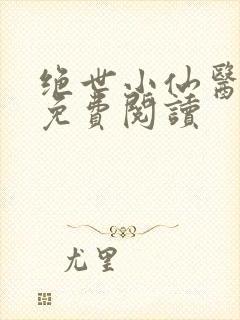 绝世小仙醫
免費閱讀
尤里